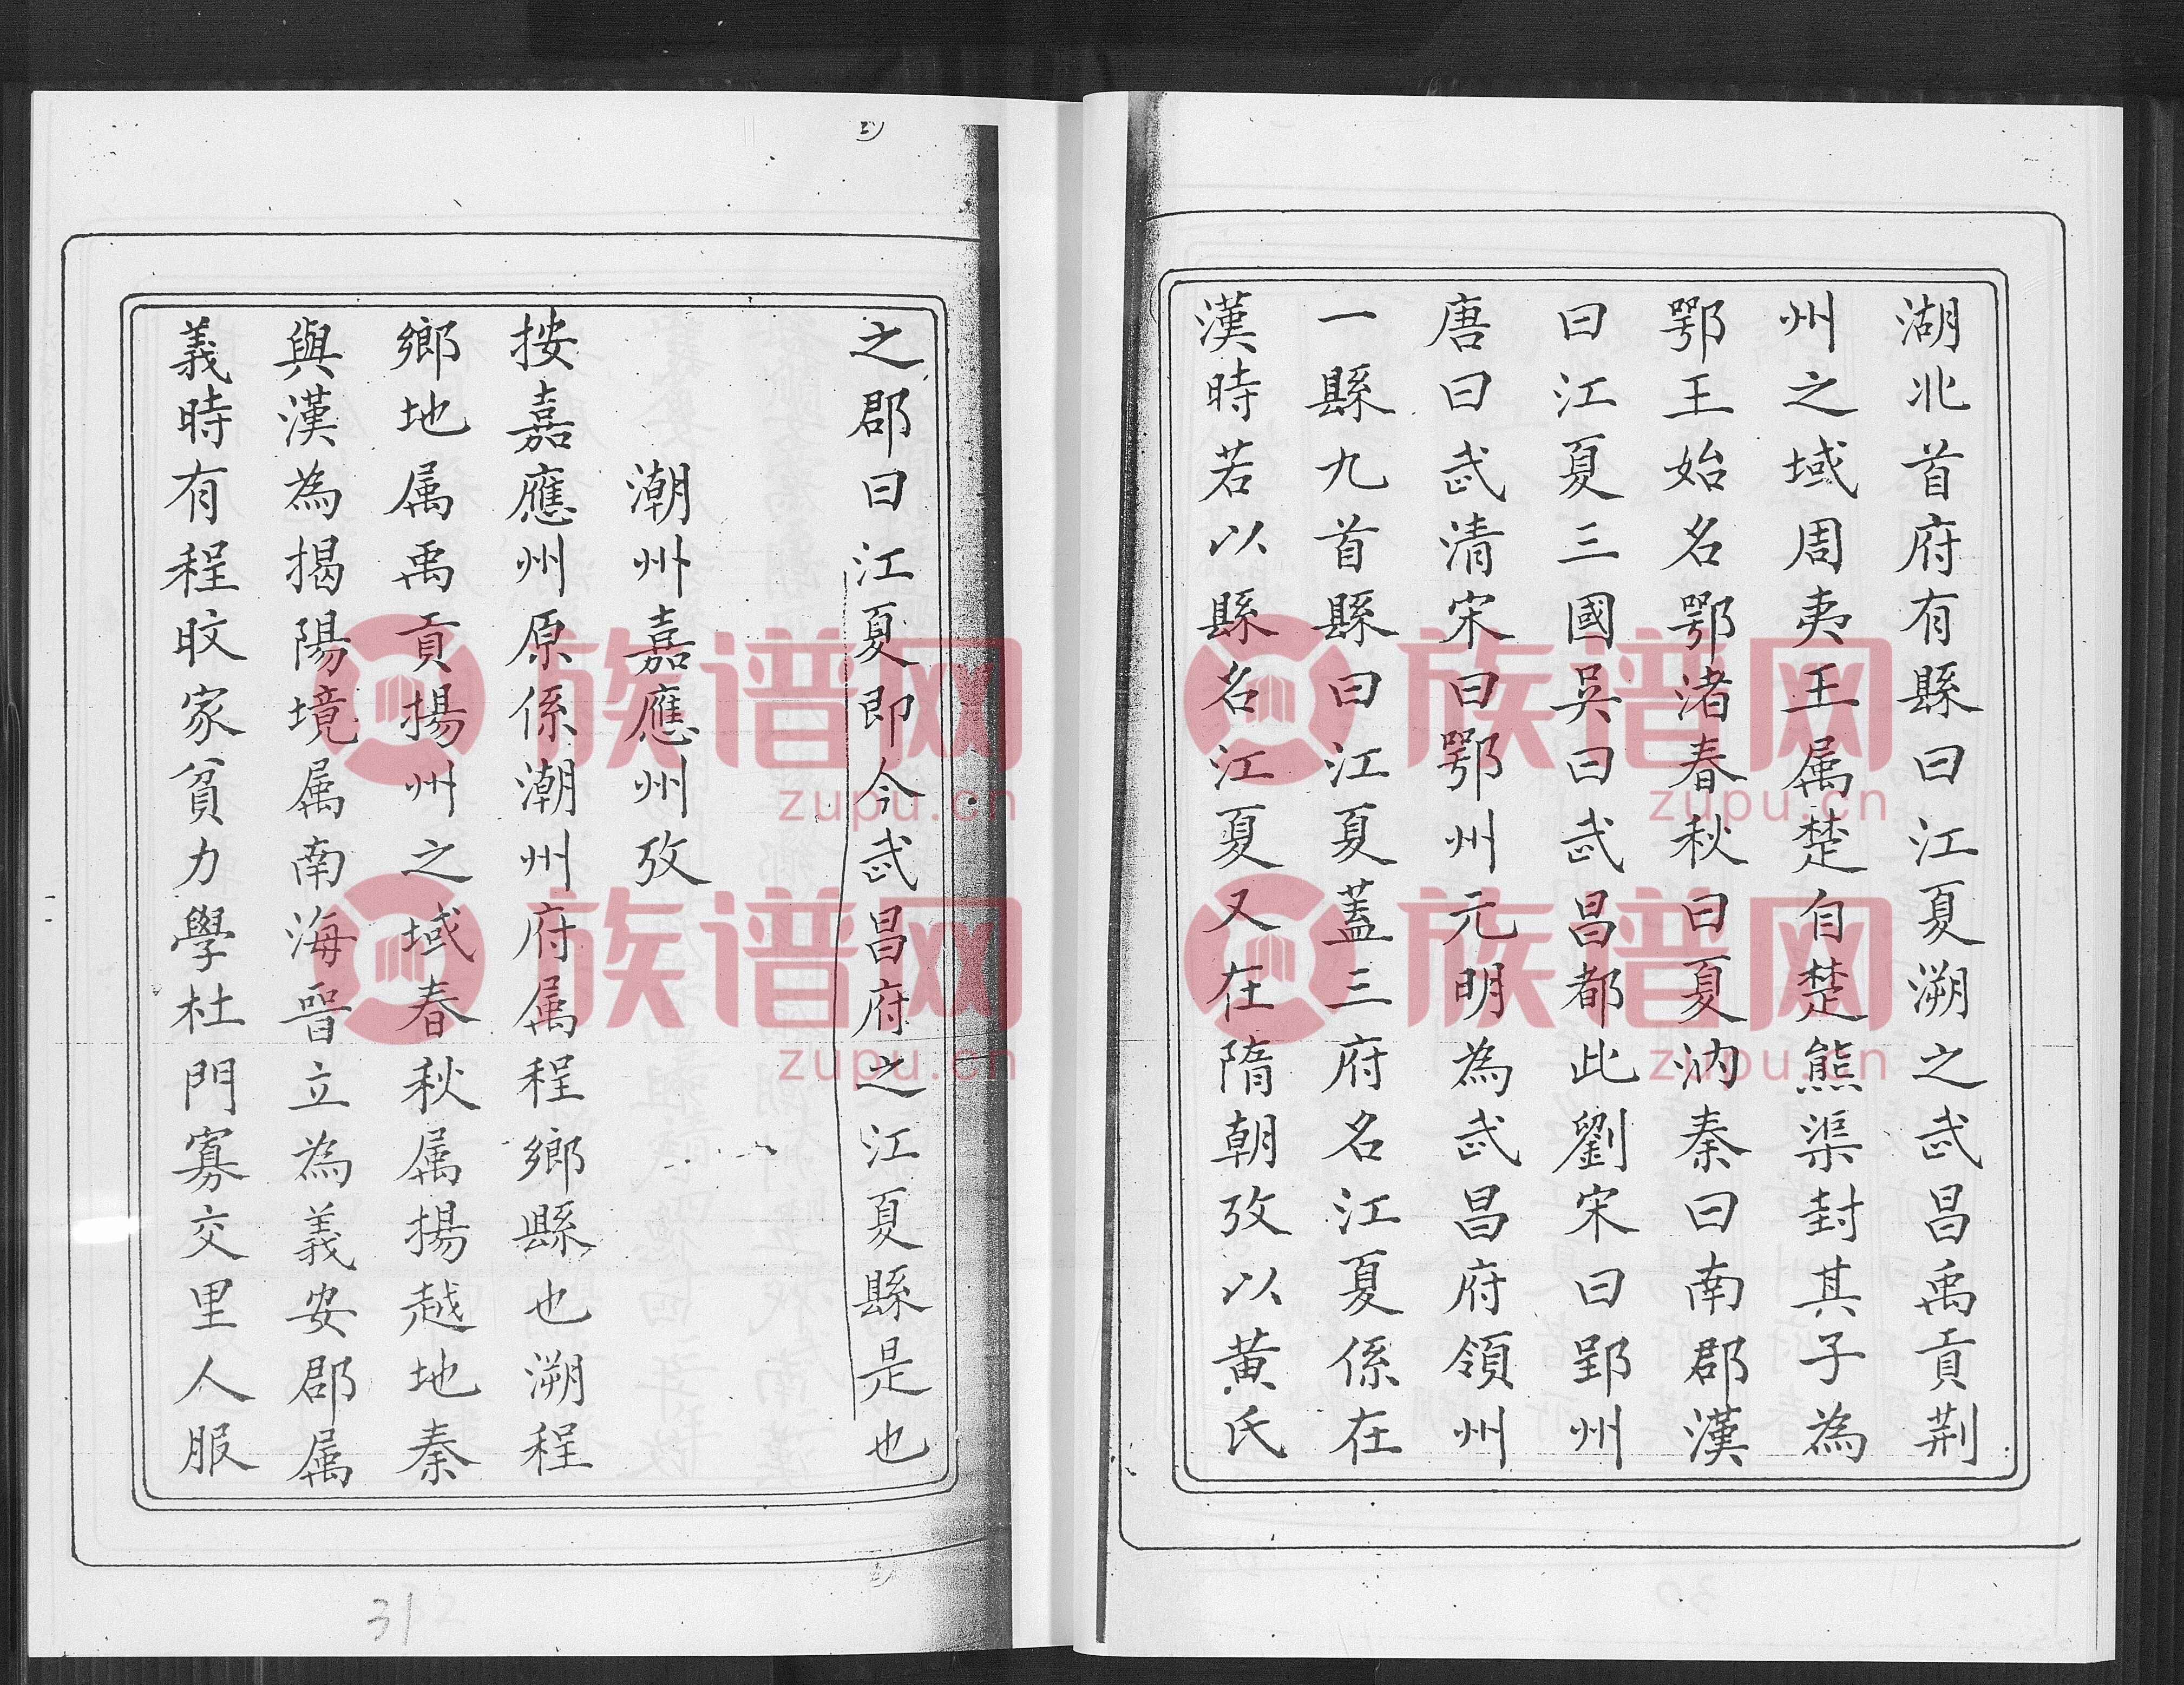 湖北首府有縣曰江夏溯之武昌禹貢荆
州之域周夷王属楚自楚熊渠封其子為
鄂王始名鄂渚春秋曰夏汭秦曰南郡漢
曰江夏三國吳曰武昌都此劉宋曰郢州
唐曰武清宋曰鄂州元明為武昌府領州
一縣九首縣曰江夏蓋三府名江夏係在
漢時若以縣名江夏又在隋朝攷以黄氏
之郡曰江夏即今武昌府之江夏縣是也
潮州嘉應州攷
按嘉應州原係潮州府属程鄉縣也溯程
鄉地属禹貢揚州之域春秋属揚越地秦
與漢為揭陽境属南海晉立為義安郡属
義時有程旼家貧力學杜門寡交里人服
31
族谱网
zupu.cn
族谱网
zupu.cn
族谱网
zupu.cn
族谱网
zupu.cn